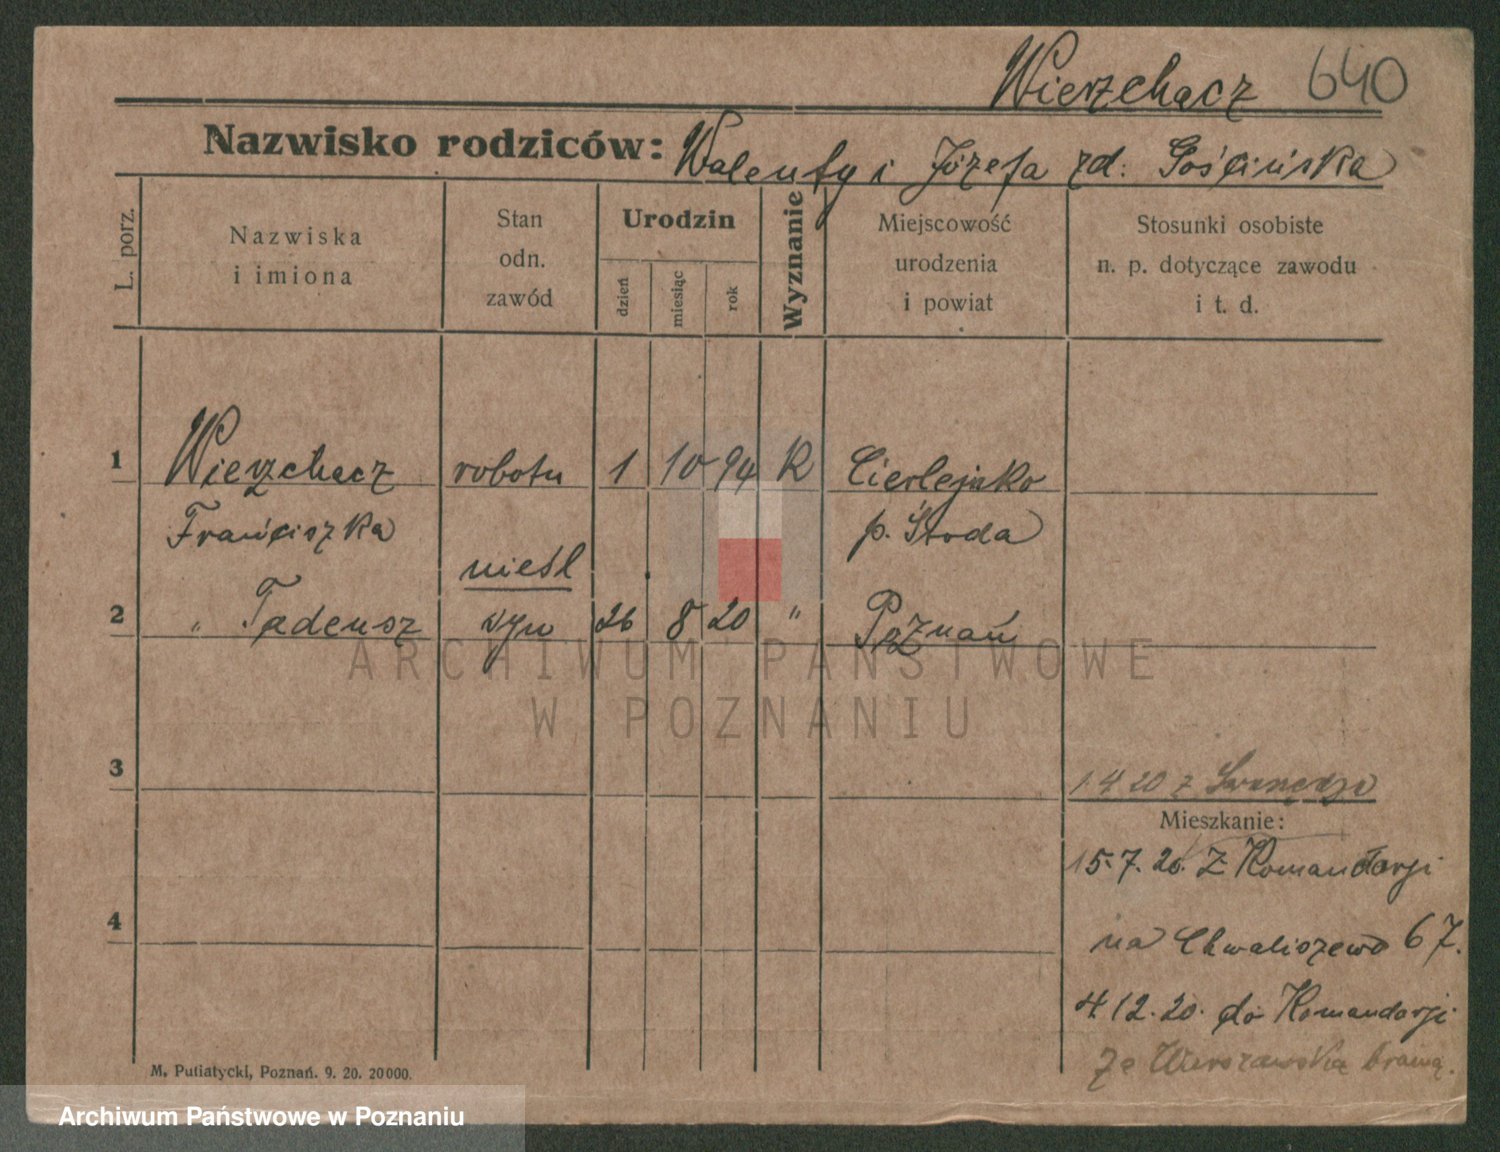 Wierzchacz 640
Nazwisko rodziców: Walenty i Józefa zd. Gościńska
L. porz.
Nazwiska
i imiona
Stan
odn.
zawód
Urodzin
dzień
miesiąc
rok
Wyznanie
Miejscowość
urodzenia
i powiat
Stosunki osobiste
n. p. dotyczące zawodu
i t. d.
1 Wierzchacz robotn 1 10 94 K
Franciszka p. Środa
nieśl
2 " Tadeusz syn 26 8 20 " Poznań
ARCHIWUM PAŃSTWOWE
W POZNANIU
3 1.4.20 z Swarzędza
Mieszkanie:
15.7.20. Z Komandorji
4 na Chwaliszewo 67.
4.12.20. do Komandorji
Ze Warszawską bramą.
M. Putiatycki, Poznań. 9. 20. 20000.
Archiwum Państwowe w Poznaniu